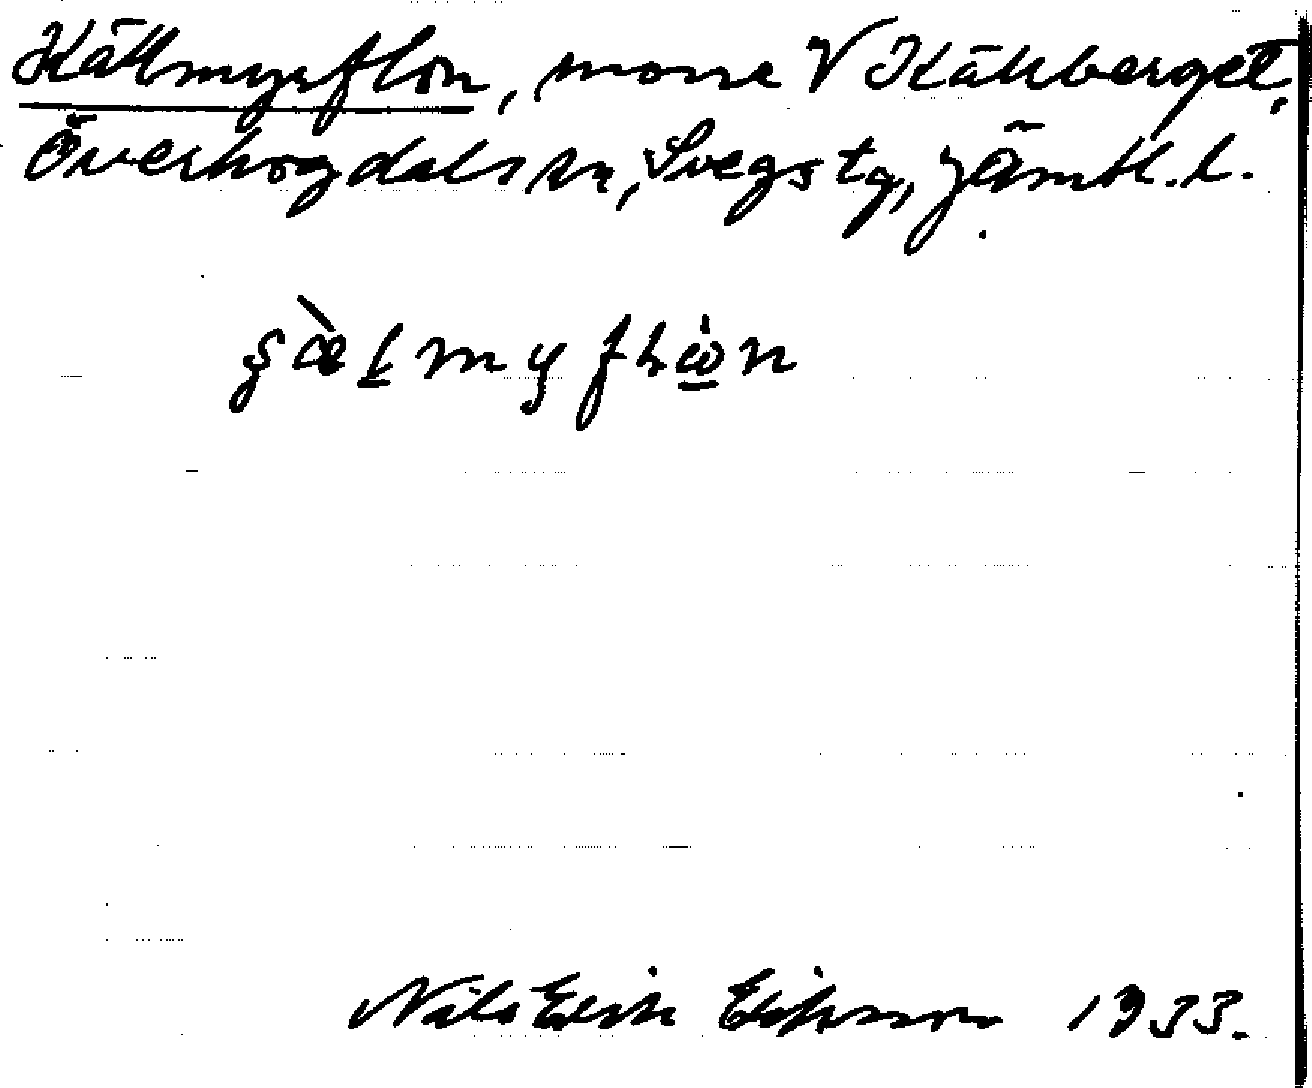 Källmyrflon, mosse V Källberget,
Överhogdals sn, Svegs tg, Jämtl. l.
Nils Erik Eriksson 1933.